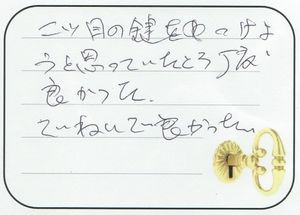 二ツ目の鍵をつけよ
うと思っていたところ丁度
良かった。
ていねいで良かった。